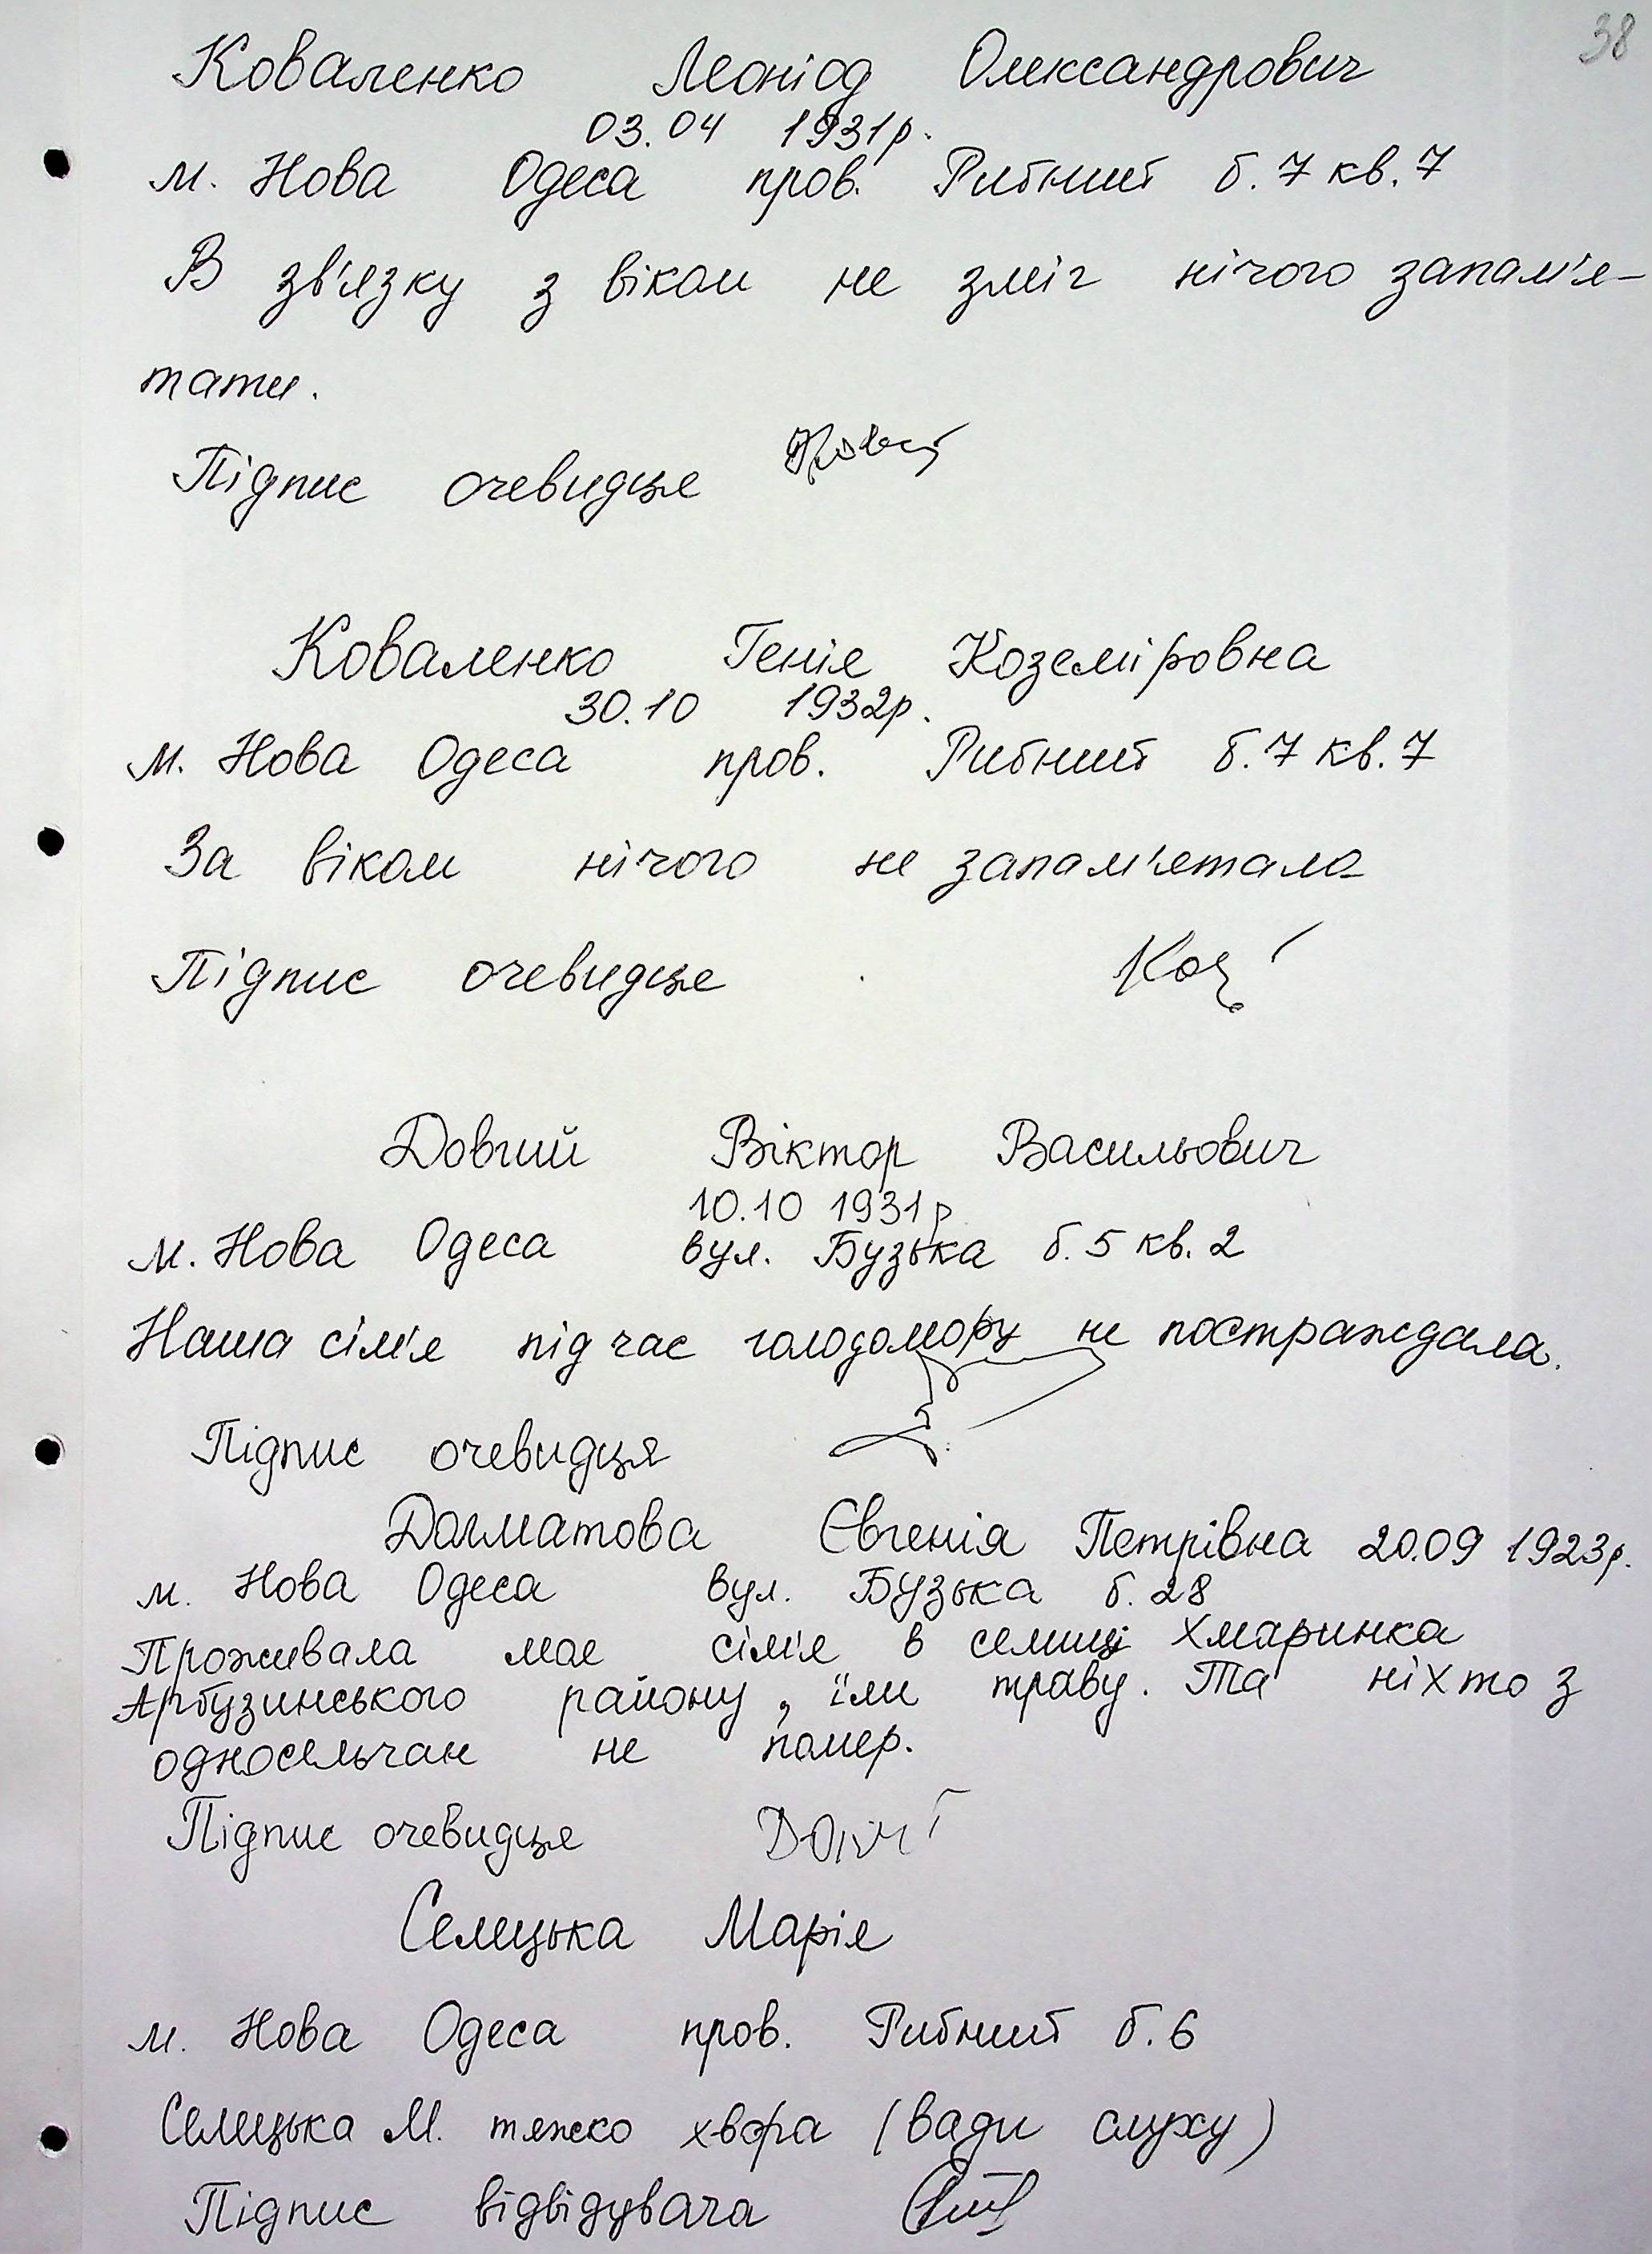 38
Коваленко Леонід Олександрович
03.04 1931р.
м. Нова Одеса пров. Рибний б.7 кв.7
В зв'язку з віком не зміг нічого запам'я-
тати.
Підпис очевидця
Коваленко Генія Коземіровна
30.10 1932р.
м. Нова Одеса пров. Рибний б.7 кв.7
За віком нічого не запам'ятала
Підпис очевидця
Довгий Віктор Васильович
10.10 1931р
м. Нова Одеса вул. Бузька б.5 кв.2
Наша сім'я під час голодомору не постраждала.
Підпис очевидця
Долматова Євгенія Петрівна 20.09 1923р.
м. Нова Одеса вул. Бузька б.28
Проживала моя сім'я в селищі Хмаринка
Арбузинського району, їли траву. Та ніхто з
односельчан не помер.
Підпис очевидця
Селецька Марія
м. Нова Одеса пров. Рибний б.6
Селецька М. тяжко хвора (вади слуху)
Підпис відвідувача